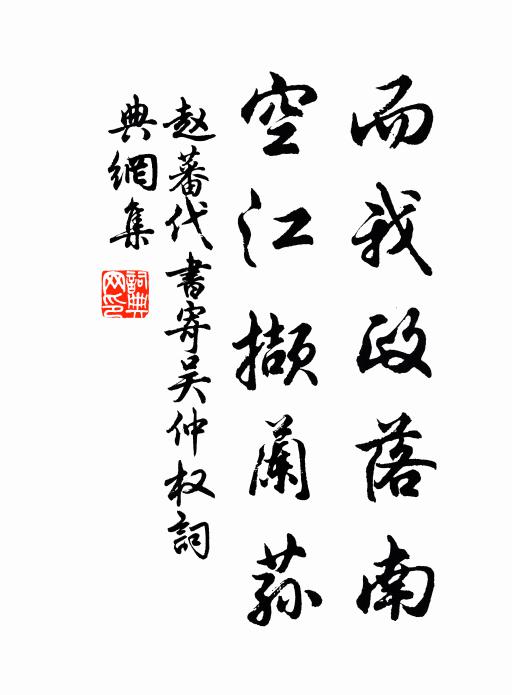 而我政落南
空江擷蘭蓀
赵蕃代书寄吴仲权詞
典網集
詞典网印